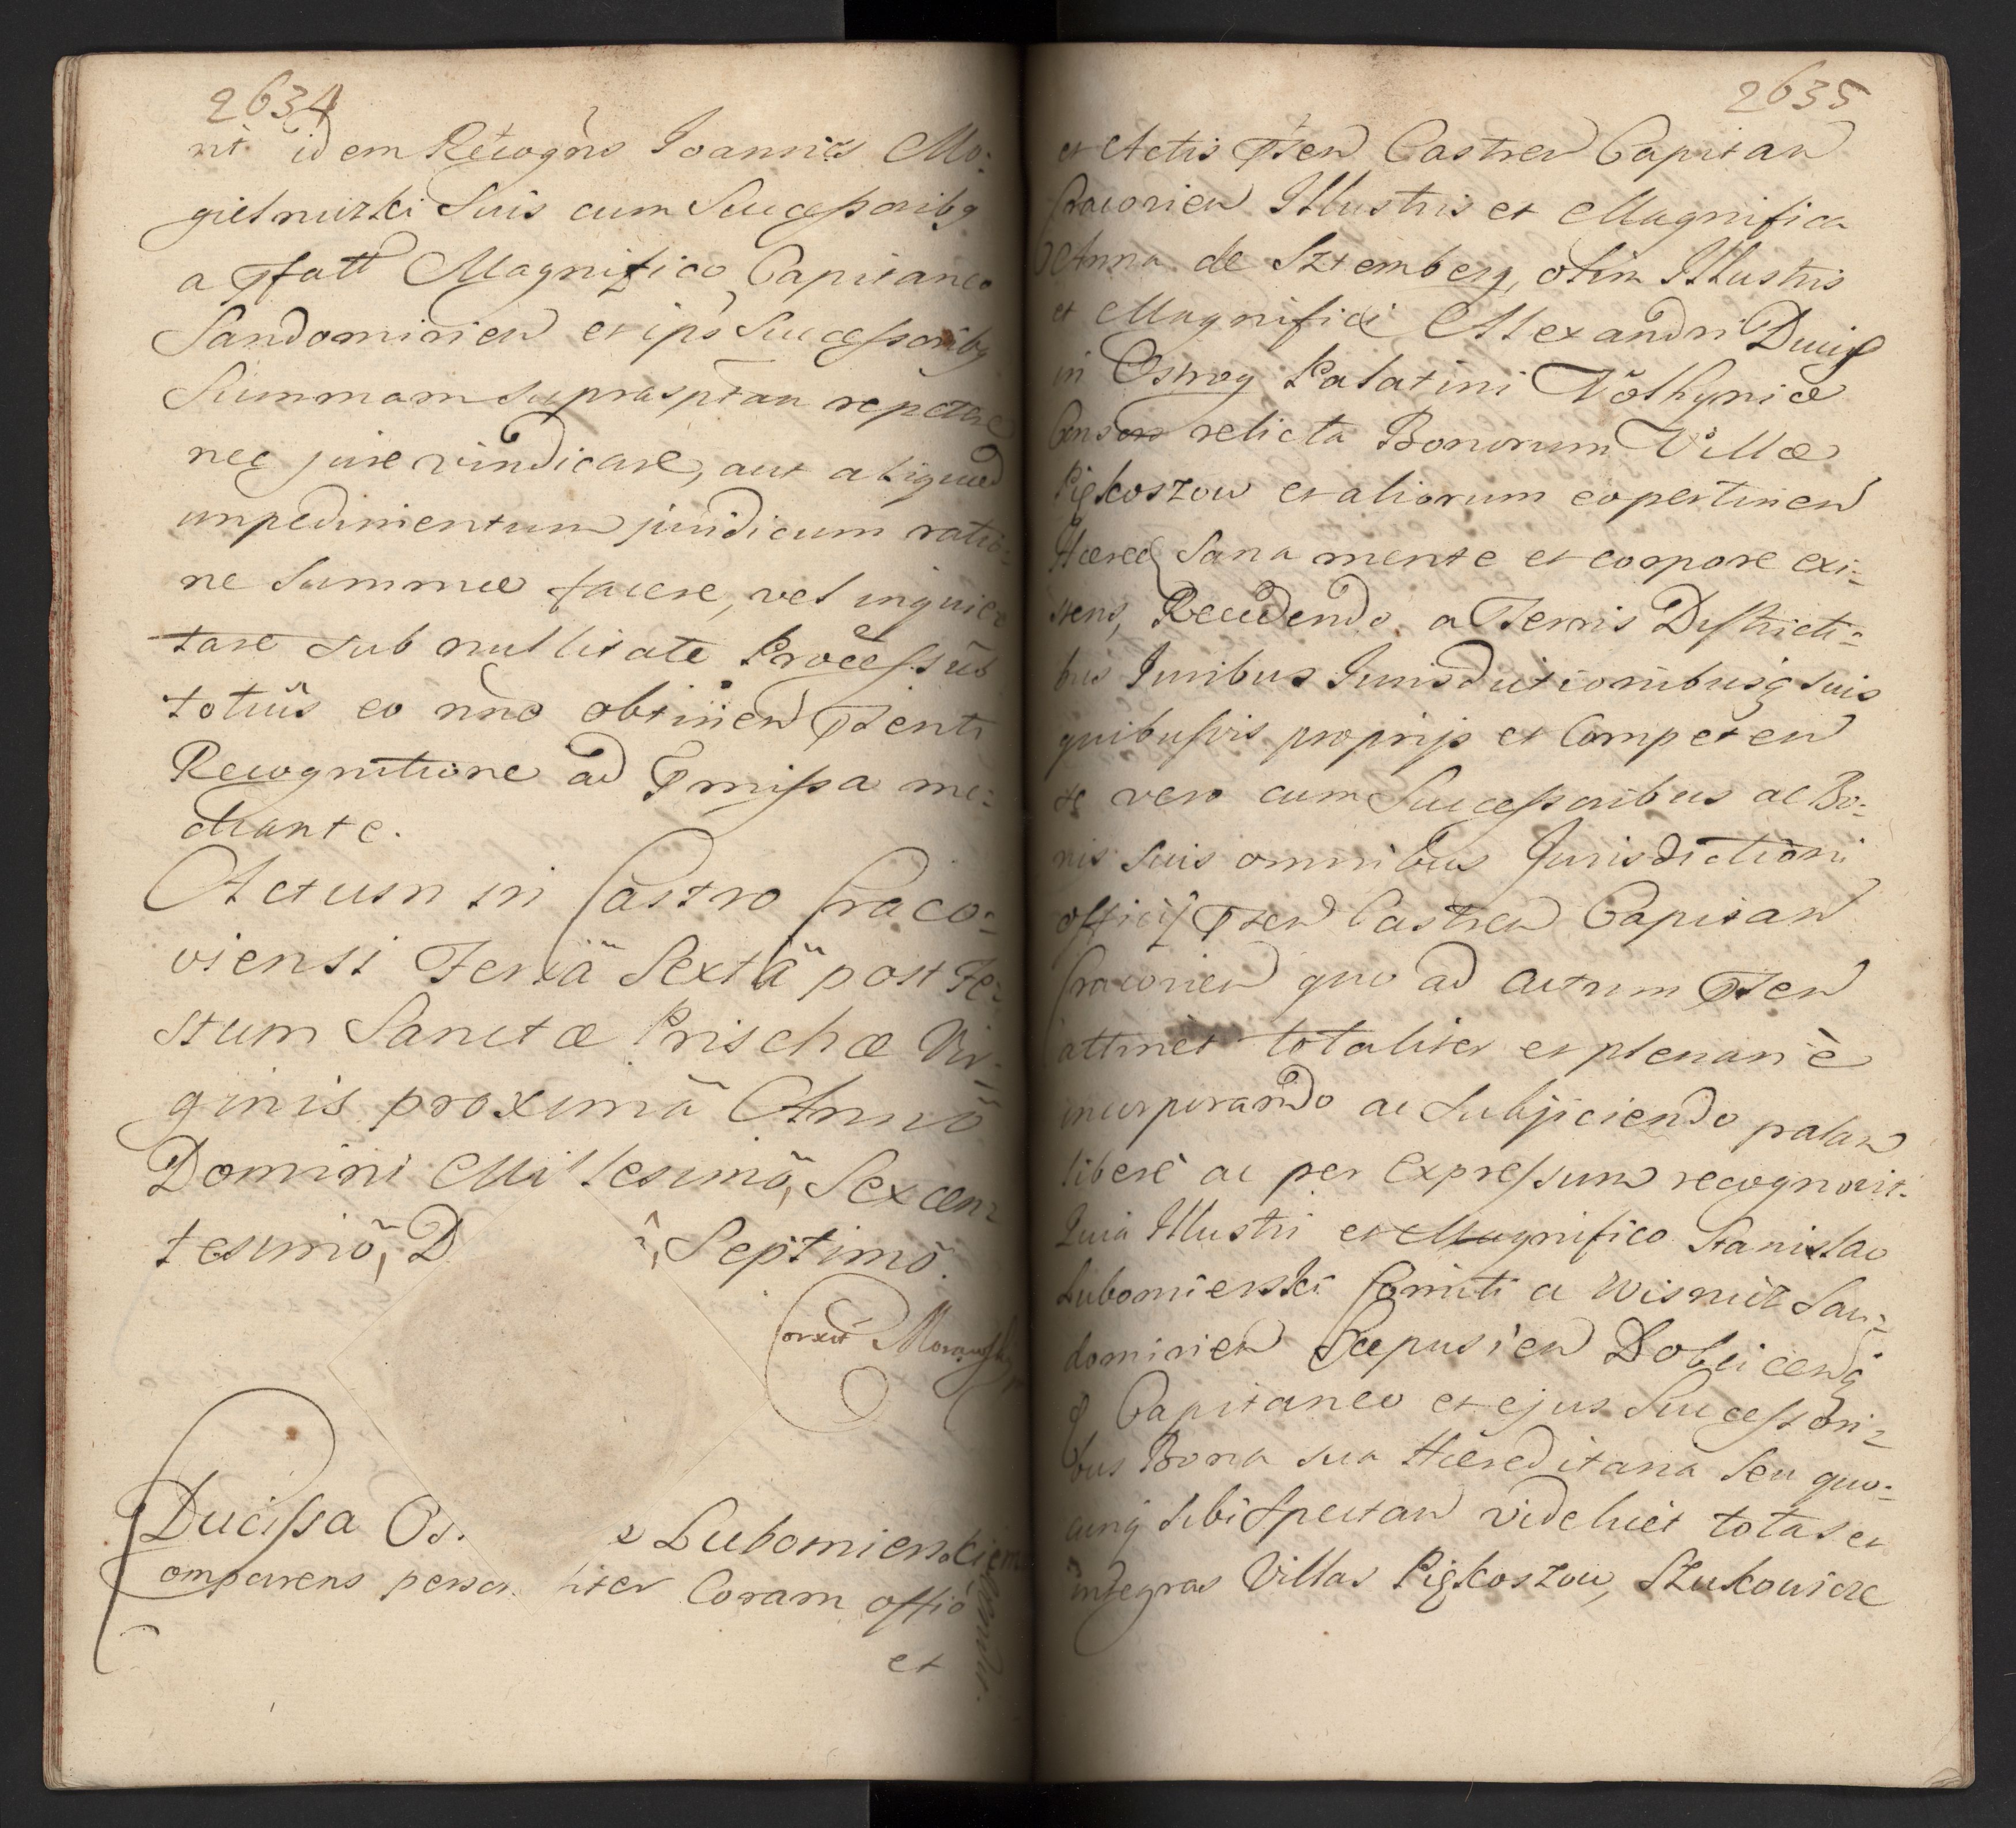 2634
nt idem Recogñs Joannies Mo-
gielnizki Suis cum Successoribq
a Pfatt Magnifico Capitaneo
Sandomirien et ips Successoribq
Summam suprasptam repetere
nec jure vindicare, aut aliquod
impedimentum juridicum ratio-
ne Summæ facere, vel inquie-
tare sub nullitate Processus
totius eo nno obtinen Psenti
Recognitione ad Pmissa me-
diante.
Actum in Castro Craco-
viensi Feriã Sextã post Fe-
stum Sanctæ Prischæ Vir-
ginis proximã Annõ
Domini Millesimõ, Sexcen-
tesimõ, D Septimõ.
Corxit Morawski
Ducissa Os. Lubomierskiem
Comparens person liter Coram offio
et
2635
et Actis Psen Castren Capitan
Cracovien Illustris et Magnifica
Anna de Sztemberg, olim Illustris
et Magnifici Alexandri Ducis
in Ostrog Palatini Volhyniæ
Consors relicta Bonorum Villæ
Pigkoszow et aliorum eo pertinen
Hæred Sana mente et corpore exi-
stens, Recedendo a Terris Districti-
bus Juribus Jurisdictionibusq suis
quibusvis proprijs et Competen
se vero cum Successoribus ac Bo-
nis suis omnibus Jurisdictioni
officij Psen Castren Capitan
Cracovien quo ad actum Psen
attinet totaliter et plenariè
incorporando ac Subjiciendo palam
liberè ac per expressum recognovit.
Quia Illustri et Magnifico Stanislao
Lubomierski Comiti a Wisnicz San-
domirien Scepusien Dobczicenq
Capitaneo et ejus Successori-
bus Bona sua Hæreditaria seu quo-
cunq sibi Spectan videlicet totas et
integras Villas Pigkoszow, Szukowicze